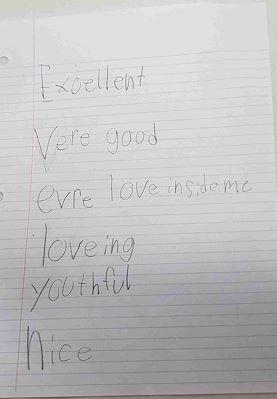 Excellent
Vere good
evre love inside me
loveing
youthful
nice